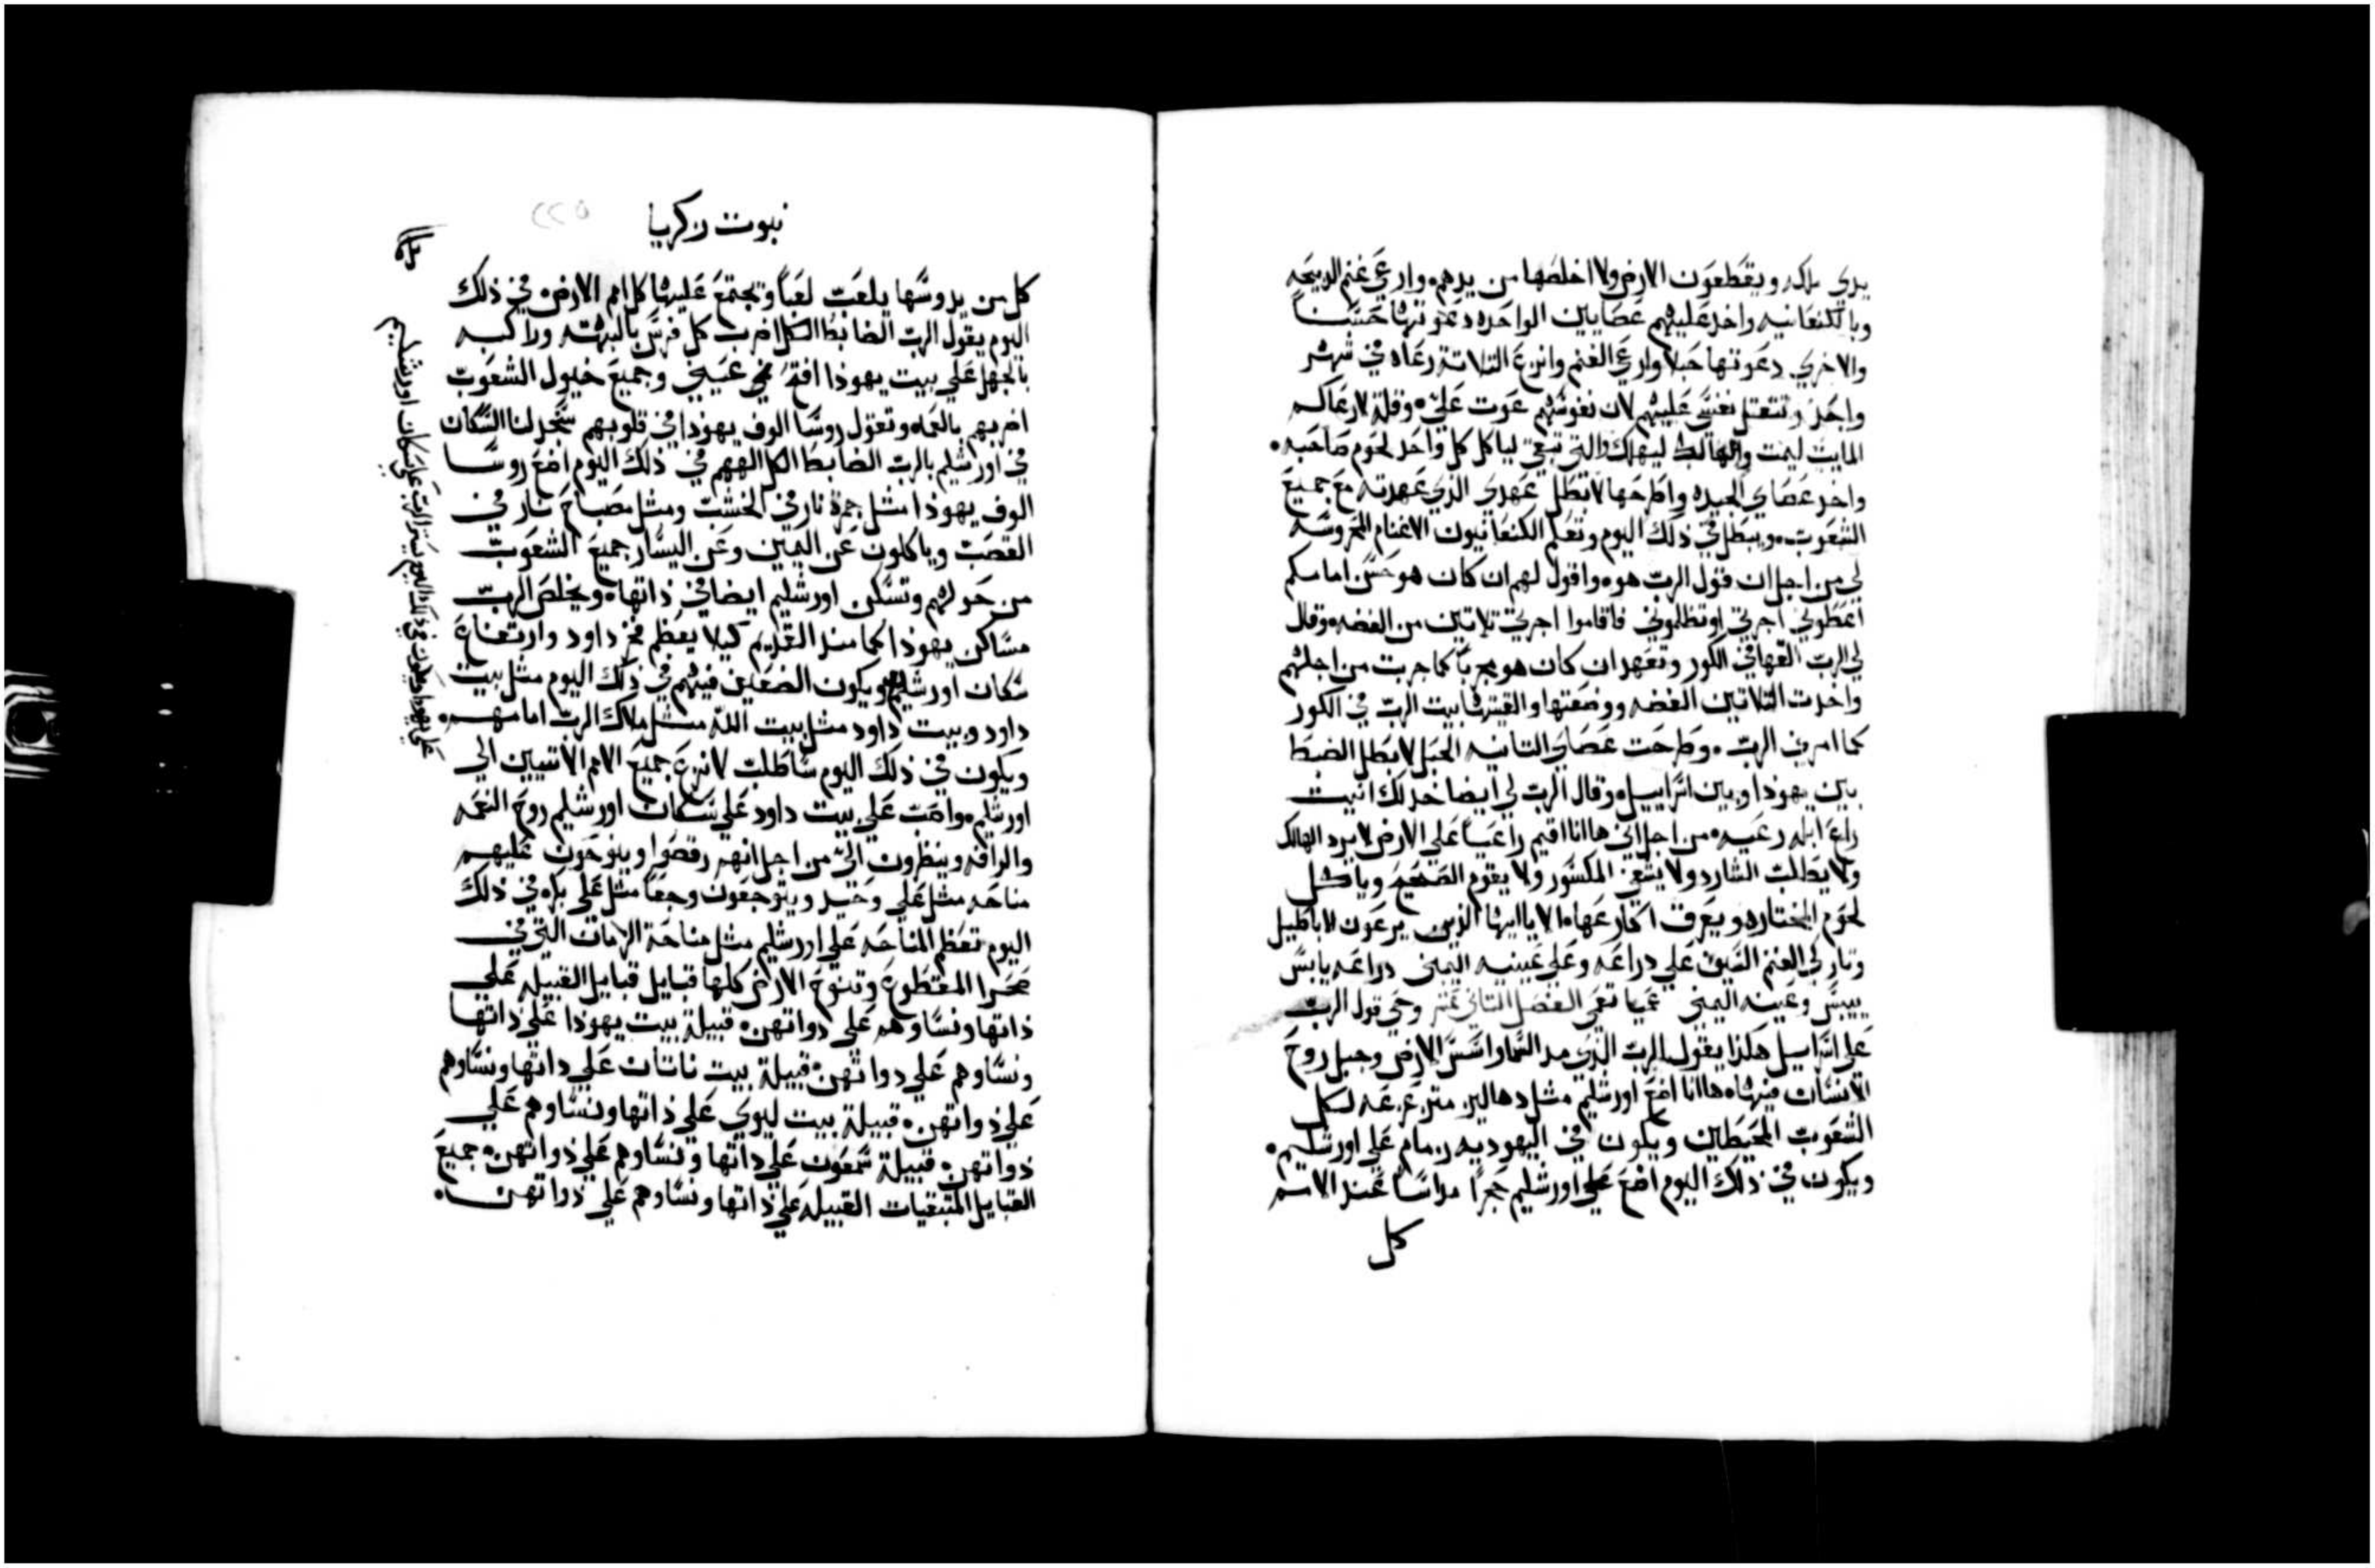 يدي ملكه ويقطعون الارض ولا اخلصها من يدهم وارعي غنم الدبيحه
وبالكنعانيه واخد عليهم عصايين الواحده دعوتها حسناً
والاخري دعوتها حبلا وارعي الغنم وانزع التلاتة رعاه في شهر
واحد وتتقتل نفسي عليهم لان نفوسهم عوت علي وقلت لا رعاكم
المايت ليمت والهالك ليهلك والتي تبقي لياكل كل واحد لحوم صاحبه
واخد عصاي الجيده واطرحها لابطل عهدي الذي عهدته مع جميع
الشعوب ويبطل في ذلك اليوم وتعلم الكنعانيون الاغنام المحروسه
لي من اجل ان قول الرب هو وافول لهم ان كان هو حسن امامكم
اعطوني اجرتي او تظلموني فاقاموا اجرتي تلاتين من الفضه وقال
لي الرب القها في الكور وتعهد ان كان هو مجرباً كما جربت من اجلهم
واخدت التلاتين الفضه ووضعتها والقيتها بيت الرب في الكور
كما امرني الرب وطرحت عصاي التانيه الحبل لابطل الضبط
بين يهودا وبين اسراييل وقال الرب لي ايضا خد لك انيت
راع ابله رعيه من اجل اني هاانا اقيم راعياً علي الارض لا يرد الهالك
ولا يطلب الشارد ولا يشفي المكسور ولا يقوم الصحيح وياكل
لحوم المختاره ويعرق اكارعها الا ياايها الذين يرعون الاباطيل
وتاركي الغنم السيف علي دراعه وعلي عينيه اليمني دراعه يابس
ييبس وعينه اليمني عميا تعمي الفصل التاني عشر وحي قول الرب
علي اسراسل هكذا يقول الرب الذي مد السما واسس الارض وجبل روح
الانسان فيها هاانا اضع اورشليم مثل دهاليز متزعزعه لكل
الشعوب المحيطين ويكون في اليهوديه زمام علي اورشليم
ويكون في ذلك اليوم اضع علي اورشليم حجراً مداساً عند الامم
كل
نبوت زكريا
٢٢٥
كل من يدوسها يلعب لعباً وتجتمع عليها كل امم الارض في ذلك
اليوم يقول الرب الضابط الكل اضرب كل فرس بالبهته وراكبه
بالجهل علي بيت يهودا افتح عيني وجميع خيول الشعوب
اضربهم بالعماه وتقول روسا الوف يهودا في قلوبهم سنجد لنا السكان
في اورشليم بالرب الضابط الكل الههم في ذلك اليوم اضع روسا
الوف يهودا مثل جمرة نار في الخشب ومثل مصباح نار في
القصب وياكلون عن اليمين وعن اليسار جميع الشعوب
من حولهم وتسكن اورشليم ايضا في ذاتها ويخلص الرب
مساكن يهودا كما منذ القديم كيلا يعظم فخر داود وارتفاع
سكان اورشليم ويكون الضعيف فيهم في ذلك اليوم مثل بيت
داود وبيت داود مثل بيت الله مثل ملاك الرب امامهم
ويكون في ذلك اليوم ساطلب لانزع جميع الامم الاتيين الي
اورشليم واصب علي بيت داود علي سكان اورشليم روح النعمه
والرافه وينظرون الي من اجل انهم رقصوا وينوحون عليهم
مناحه مثل علي وحيد ويتوجعون وجعاً مثل علي بكره في ذلك
اليوم تعظم المناحه علي اورشليم مثل مناحة الرمان التي في
صحرا المقطوع وتنوح الارض كلها قبايل قبايل القبيله علي
ذاتها ونساوهم علي دواتهن قبيلة بيت يهودا علي ذاتها
ونساوهم علي دواتهن قبيلة بيت ناتان علي داتها ونساوهم
علي ذواتهن قبيلة بيت ليوي علي ذاتها ونساوهم علي
ذواتهن قبيلة شمعون علي داتها ونساوهم علي ذواتهن جميع
القبايل المتبقيات القبيله علي ذاتها ونساوهم علي ذواتهن
علي يهودا ويكون في ذلك اليوم يستر الرب علي سكان اورشليم